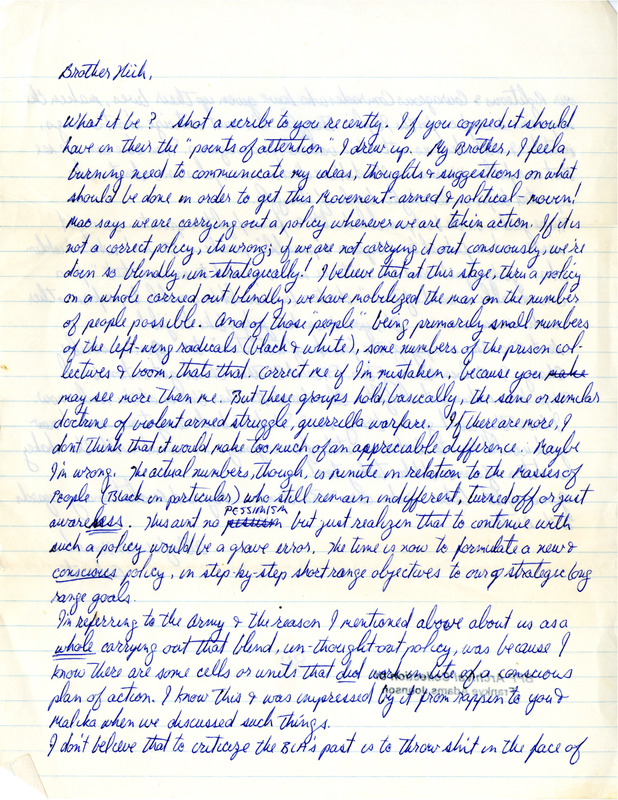 Brother Hich,
What it be? Shot a scribe to you recently. If you copped, it should
have in their the "points of attention" I drew up. My Brother, I feel a
burning need to communicate my ideas, thoughts & suggestions on what
should be done in order to get this Movement-armed & political-movin!
Mao says we are carrying out a policy whenever we are takin action. If it is
not a correct policy, its wrong; if we are not carrying it out consciously, we're
doin so blindly, un-strategically! I believe that at this stage, thru a policy
on a whole carried out blindly, we have mobilized the max on the number
of people possible. And of those "people" being primarily small numbers
of the left-wing radicals (black & white), some numbers of the prison col-
lectives & boom, thats that. Correct me if I'm mistaken, because you make
may see more than me. But these groups hold, basically, the same or similar
doctrine of violent armed struggle, guerrilla warfare. If there are more, I
dont think that it would make too much of an appreciable difference. Maybe
I'm wrong. The actual numbers, though, is minute in relation to the Masses of
People (Black in particular) who still remain indifferent, turned off or just
awareless. This aint no PESSIMISM but just realizin that to continue with
such a policy would be a grave error. The time is now to formulate a new &
conscious policy, in step-by-step short range objectives to our strategic long
range goals.
I'm referring to the Army & the reason I mentioned above about us as a
whole carrying out that blind, un-thought-out policy, was because I
know there are some cells or units that did work in lite of a conscious
plan of action. I know this & was impressed by it from rappin to you &
Malika when we discussed such things.
I don't believe that to criticize the BLA's past is to throw shit in the face of